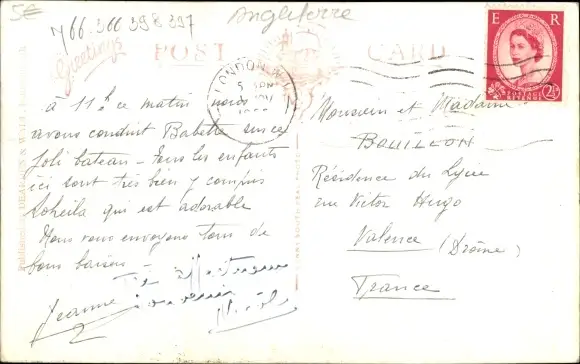 5€
766 366 398 397
Angleterre
Greetings
POST CARD
E R
LONDON
5 PM
2½
à 11h ce matin nous
avons conduit Babette sur ce
joli bateau - Tous les enfants
ici sont très bien y compris
Soheila qui est adorable
Nous vous envoyons tous de
bons baisers
Jeanne
Très affectueux
souvenir
Monsieur et Madame
BOUILLON
Résidence du Lycée
rue Victor Hugo
Valence (Drôme)
France